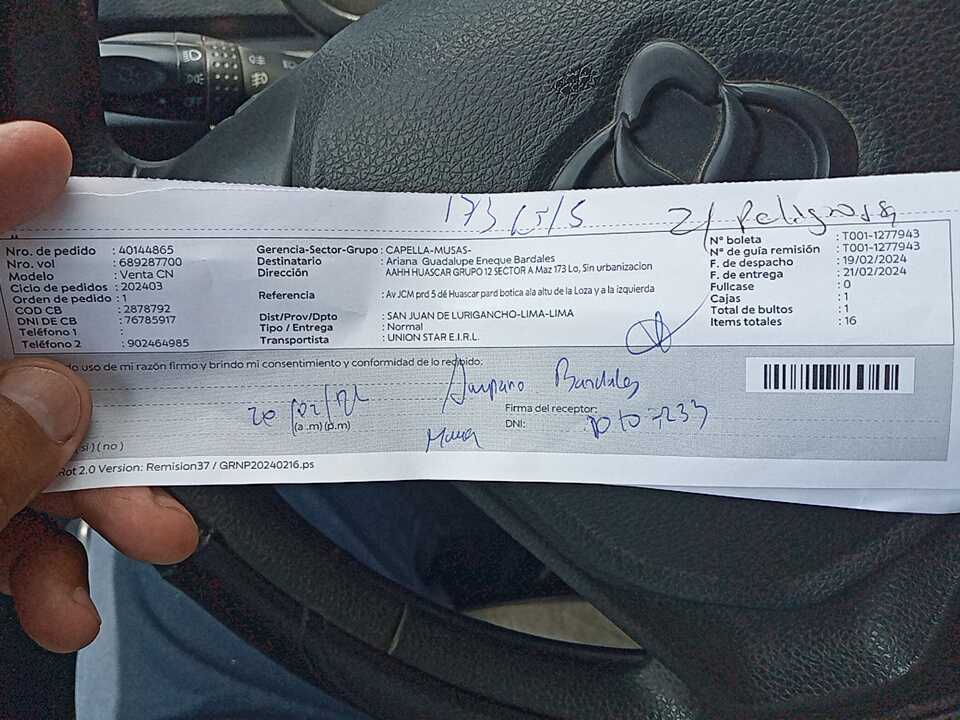 173 Lt/S Z/ Peligrosa
Nro. de pedido : 40144865
Nro. vol : 689287700
Modelo : Venta CN
Ciclo de pedidos : 202403
Orden de pedido : 1
COD CB : 2878792
DNI DE CB : 76785917
Teléfono 1 :
Teléfono 2 : 902464985
Gerencia-Sector-Grupo : CAPELLA-MUSAS-
Destinatario : Ariana Guadalupe Eneque Bardales
Dirección AAHH HUASCAR GRUPO 12 SECTOR A Maz 173 Lo, Sin urbanizacion
Referencia : Av JCM prd 5 dé Huascar pard botica ala altu de la Loza y a la izquierda
Dist/Prov/Dpto : SAN JUAN DE LURIGANCHO-LIMA-LIMA
Tipo / Entrega : Normal
Transportista : UNION STAR E.I.R.L.
N° boleta : T001-1277943
N° de guía remisión : T001-1277943
F. de despacho : 19/02/2024
F. de entrega : 21/02/2024
Fullcase : 0
Cajas : 1
Total de bultos : 1
Items totales : 16
do uso de mi razón firmo y brindo mi consentimiento y conformidad de lo recibido:
20/02/24
(a.m)(p.m)
Amparo Bardales
Firma del receptor:
DNI:
(si) (no)
Rot 2.0 Version: Remision37 / GRNP20240216.ps